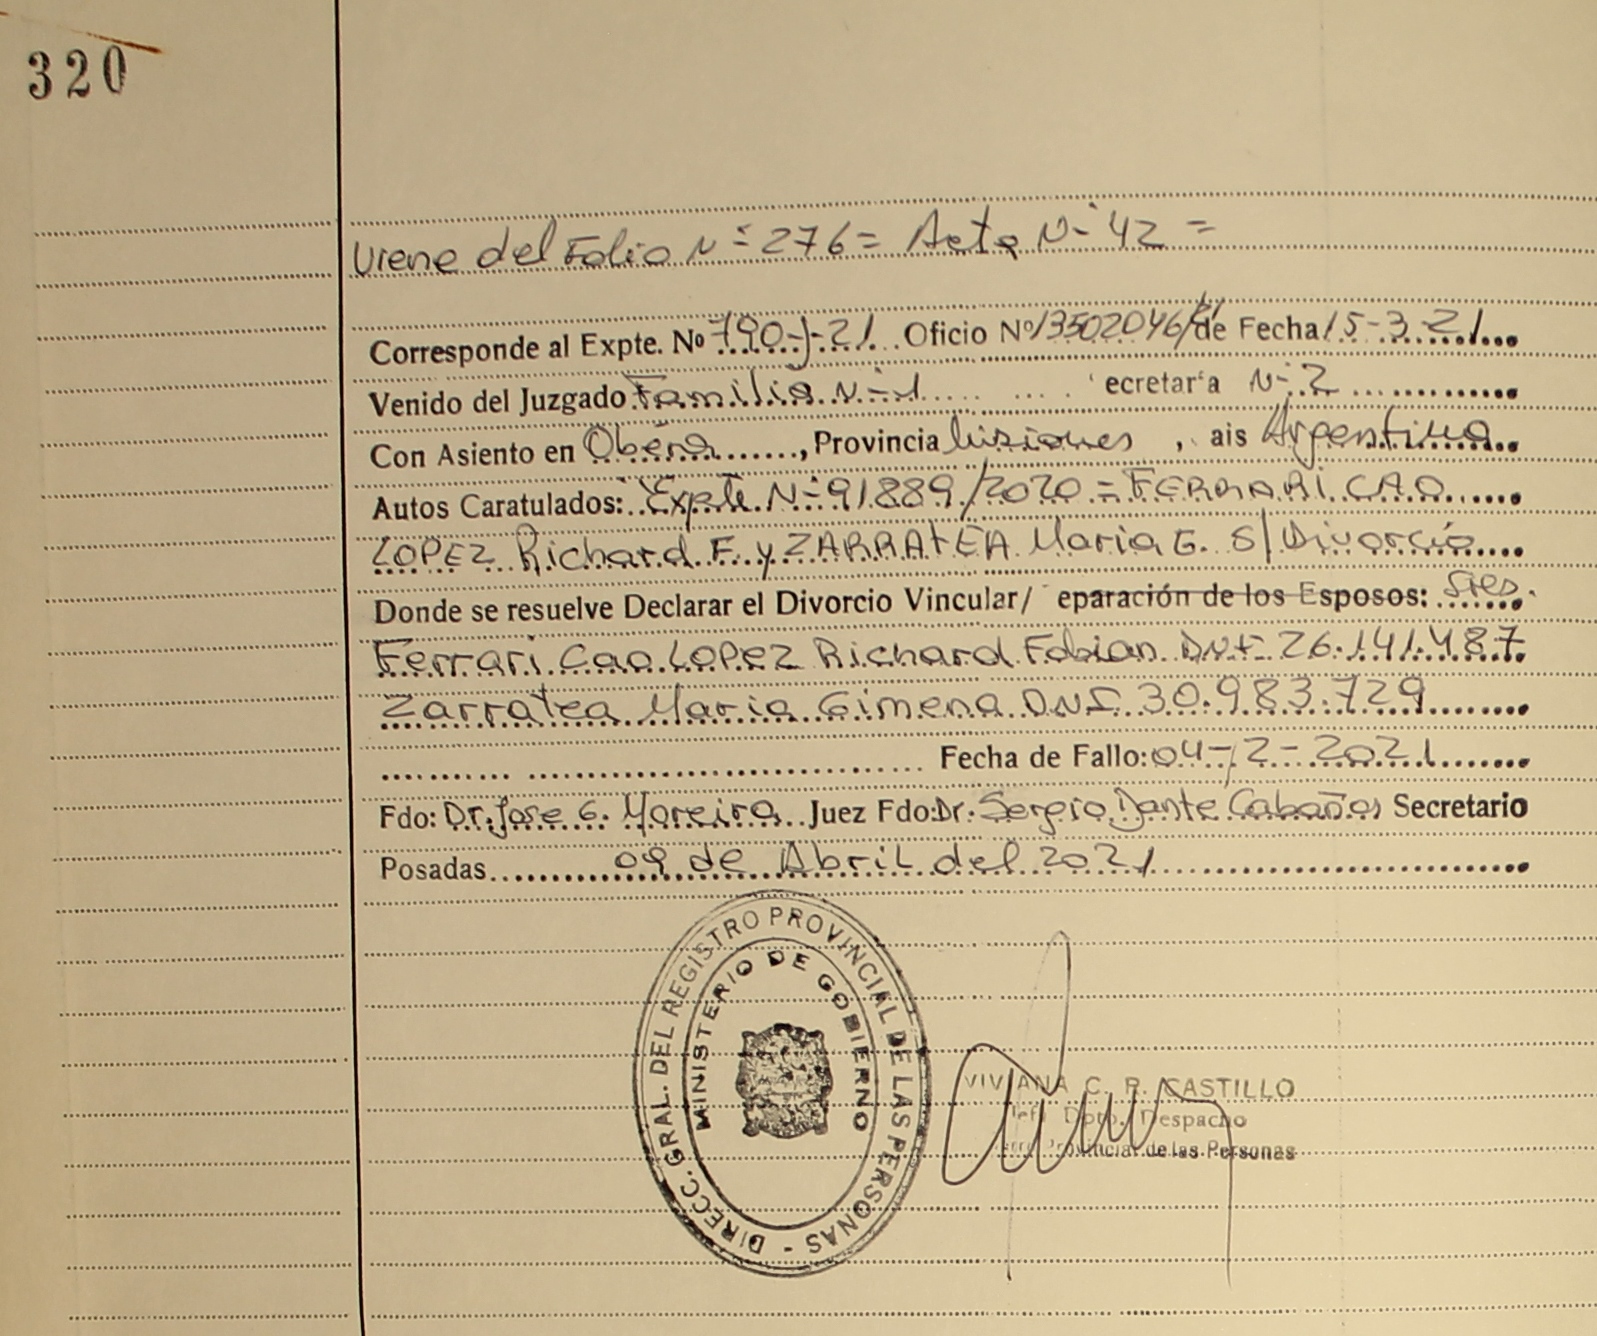 320
Viene del Folio Nº 276 = Acta Nº 42 =
Corresponde al Expte. Nº 790-J-21 Oficio Nº 13502046/21 de Fecha 15-3-21
Venido del Juzgado Familia Nº 1 ecretar a Nº 2
Con Asiento en Oberá, Provincia Misiones, ais Argentina
Autos Caratulados: Expte Nº 91889/2020 = FERRARI CAO
LOPEZ Richard F. y ZARRATEA Maria G. S/ Divorcio
Donde se resuelve Declarar el Divorcio Vincular/ eparación de los Esposos: Sres.
Ferrari Cao Lopez Richard Fabian DNI 26.141.487
Zarratea Maria Gimena DNI 30.983.729
Fecha de Fallo: 04-2-2021
Fdo: Dr. Jose G. Moreira Juez Fdo: Dr. Sergio Dante Cabaños Secretario
Posadas 09 de Abril del 2021
DIRECC. GRAL. DEL REGISTRO PROVINCIAL DE LAS PERSONAS -
MINISTERIO DE GOBIERNO
VIVIANA C. R. CASTILLO
Jefe Dpto. Despacho
Provincial de las Personas